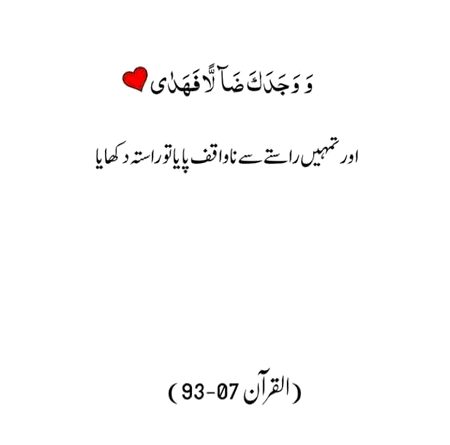 وَ وَجَدَكَ ضَآلًّا فَهَدٰى ❤️
اور تمہیں راستے سے ناواقف پایا تو راستہ دکھایا
(القرآن 07-93)